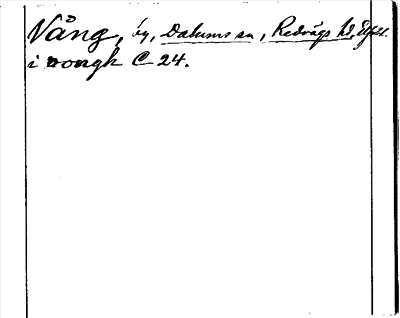 Vång, by, Dalums sn, Redvägs hd, Älfsb.
i vongh C 24.